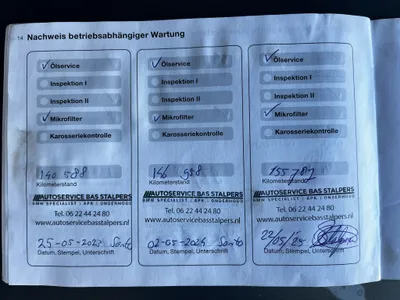 14 Nachweis betriebsabhängiger Wartung
Ölservice
Inspektion I
Inspektion II
Mikrofilter
Karosseriekontrolle
140 588
Kilometerstand
AUTOSERVICE BAS STALPERS
BMW SPECIALIST / APK / ONDERHOUD
Tel. 06 22 44 24 80
www.autoservicebasstalpers.nl
25-05-2023
Datum, Stempel, Unterschrift
Ölservice
Inspektion I
Inspektion II
Mikrofilter
Karosseriekontrolle
146 958
Kilometerstand
AUTOSERVICE BAS STALPERS
BMW SPECIALIST / APK / ONDERHOUD
Tel. 06 22 44 24 80
www.autoservicebasstalpers.nl
02-05-2024
Datum, Stempel, Unterschrift
Ölservice
Inspektion I
Inspektion II
Mikrofilter
Karosseriekontrolle
155787
Kilometerstand
AUTOSERVICE BAS STALPERS
BMW SPECIALIST / APK / ONDERHOUD
Tel. 06 22 44 24 80
www.autoservicebasstalpers.nl
22/05/25
Datum, Stempel, Unterschrift